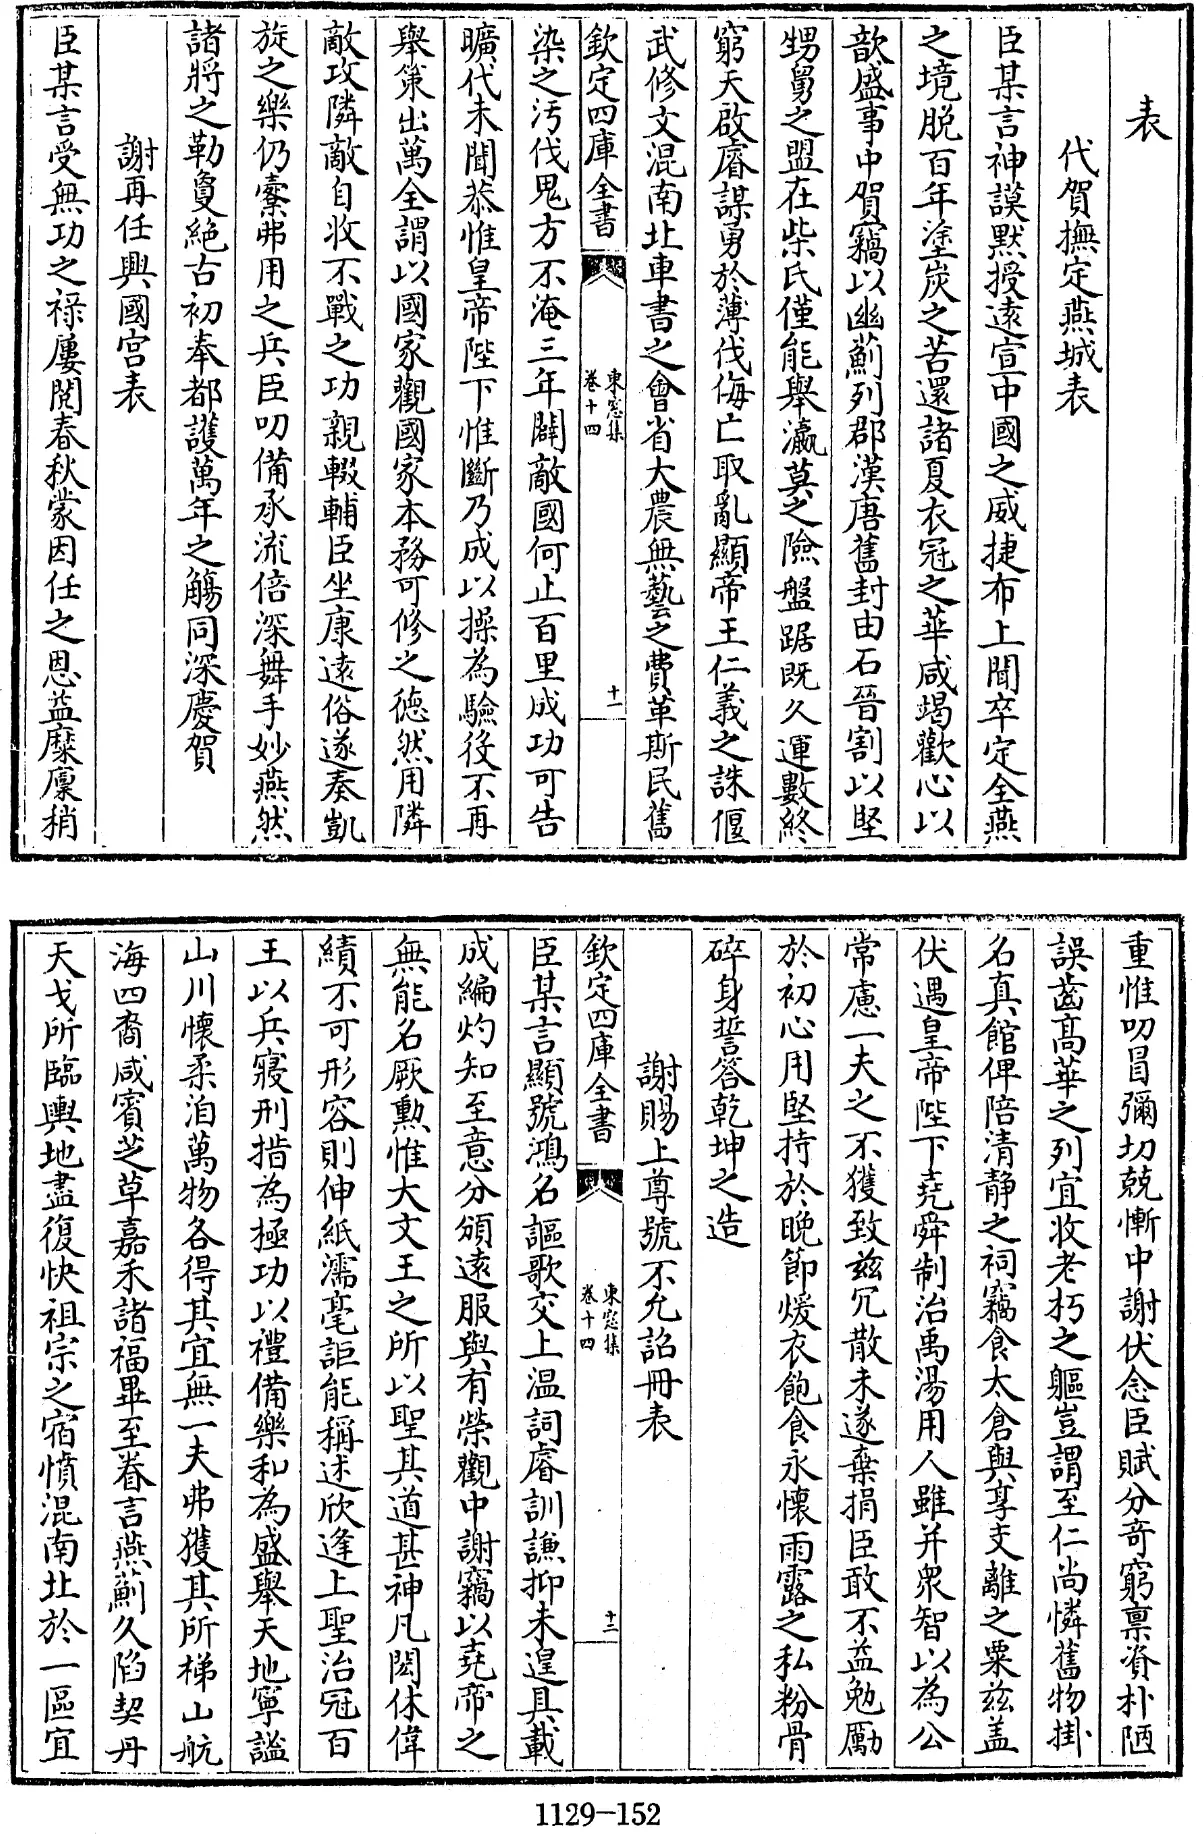 表
代賀撫定燕城表
臣某言神謨默授遠宣中國之威捷布上聞卒定全燕
之境脱百年塗炭之苦還諸夏衣冠之華咸竭歡心以
歆盛事中賀竊以幽薊列郡漢唐舊封由石晉割以堅
甥舅之盟在柴氏僅能舉瀛莫之險盤踞既久運數終
窮天啟睿謀勇於薄伐侮亡取亂顯帝王仁義之誅偃
武修文混南北車書之會省大農無藝之費革斯民舊
欽定四庫全書
東窓集
卷十四
十一
染之汚伐鬼方不淹三年闢敵國何止百里成功可告
曠代未聞恭惟皇帝陛下惟斷乃成以操為驗役不再
舉策出萬全謂以國家觀國家本務可修之德然用隣
敵攻隣敵自收不戰之功親輟輔臣坐康遠俗遂奏凱
旋之樂仍櫜弗用之兵臣叨備承流倍深舞手妙燕然
諸將之勒夐絶古初奉都護萬年之觴同深慶賀
謝再任興國宫表
臣某言受無功之禄屢閲春秋蒙因任之恩益糜廪稍
重惟叨冒彌切兢慚中謝伏念臣賦分奇窮禀資朴陋
誤蓝高華之列宜收老朽之軀豈謂至仁尚憐舊物掛
名真館俾陪清静之祠竊食太倉與享支離之粟兹盖
伏遇皇帝陛下堯舜制治禹湯用人雖并衆智以為公
常慮一夫之不獲致兹冗散未遂棄捐臣敢不益勉勵
於初心用堅持於晚節煖衣飽食永懷雨露之私粉骨
碎身誓答乾坤之造
謝賜上尊號不允詔冊表
欽定四庫全書
東窓集
卷十四
十二
臣某言顯號鴻名謳歌交上温詞睿訓謙抑未遑具載
成編灼知至意分頒遠服與有榮觀中謝竊以堯帝之
無能名厥勲惟大文王之所以聖其道甚神凡閎休偉
績不可形容則伸紙濡毫詎能稱述欣逢上聖治冠百
王以兵寢刑措為極功以禮備樂和為盛舉天地寧謐
山川懷柔洎萬物各得其宜無一夫弗獲其所梯山航
海四裔咸賓芝草嘉禾諸福畢至眷言燕薊久陷契丹
天戈所臨輿地盡復快祖宗之宿憤混南北於一區宜
1129-152